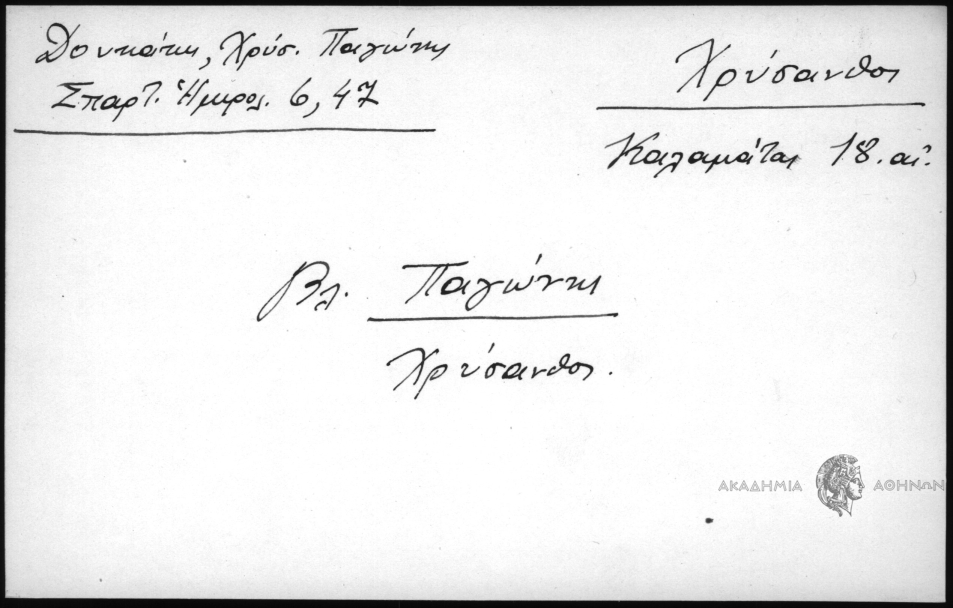 Δουκάκη, Χρύσ. Παγώνης
Σπαρτ. Ἡμερολ. 6, 47
Χρύσανθος
Καλαμάτας 18. αἰ.
Βλ. Παγώνης
Χρύσανθος.
ΑΚΑΔΗΜΙΑ ΑΘΗΝΩΝ